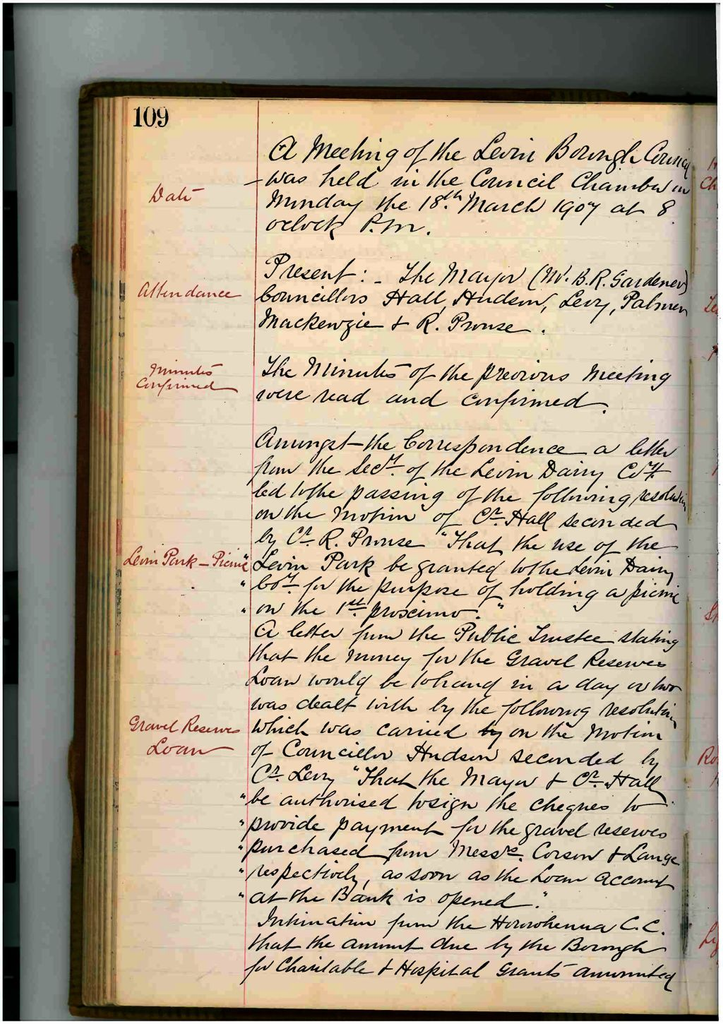 109
A Meeting of the Levin Borough Council
Date
was held in the Council Chamber on
Monday the 18th March 1907 at 8
oclock P.m.
Present:- The Mayor (Mr. B.R. Gardener)
Attendance
Councillors Hall, Hudson, Levy, Palmer
Mackenzie & R. Prouse.
Minutes
Confirmed
The Minutes of the previous Meeting
were read and confirmed.
Amongst the Correspondence a letter
from the Secty. of the Levin Dairy Coy.
led to the passing of the following resolution
on the Motion of Cr. Hall seconded
by Cr. R. Prouse "That the use of the
Levin Park - Picnic
"Levin Park be granted to the Levin Dairy
"Coy. for the purpose of holding a picnic
"on the 1st. proximo."
A letter from the Public Trustee stating
that the money for the Gravel Reserves
Loan would be to hand in a day or two
was dealt with by the following resolution
Gravel Reserves
Loan
which was carried by on the Motion
of Councillor Hudson seconded by
Cr. Levy "That the Mayor & Cr. Hall
"be authorised to sign the cheques to
"provide payment for the gravel reserves
"purchased from Messrs. Corson & Lange
"respectively, as soon as the Loan account
"at the Bank is opened."
Intimation from the Horowhenua C.C.
that the amount due by the Borough
for Charitable & Hospital Grants amounted